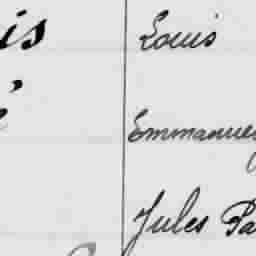 is Louis
Emmanuel
Jules Pa